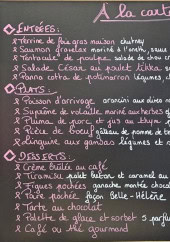 A la carte
ENTRÉES:
Terrine de foie gras maison chutney
Saumon gravelax mariné à l'aneth,
Tentacule de poulpe, salade de chou
Salade César au poulet tikka,
Panna cotta de potimarron légumes,
PLATS:
Poisson d'arrivage arancini aux olives
Suprême de volaille mariné aux herbes
Pluma de porc et jus au thym,
Pièce de boeuf gâteau de pomme de
Linguine aux gambas légumes et
DESSERTS:
Crème brûlée au café
Tiramisu palet breton et caramel au
Figues pochées ganache montée chocolat
Poire pochée façon Belle-Hélène
Tarte au chocolat
Palette de glace et sorbet 5 parfums
Café ou thé gourmand